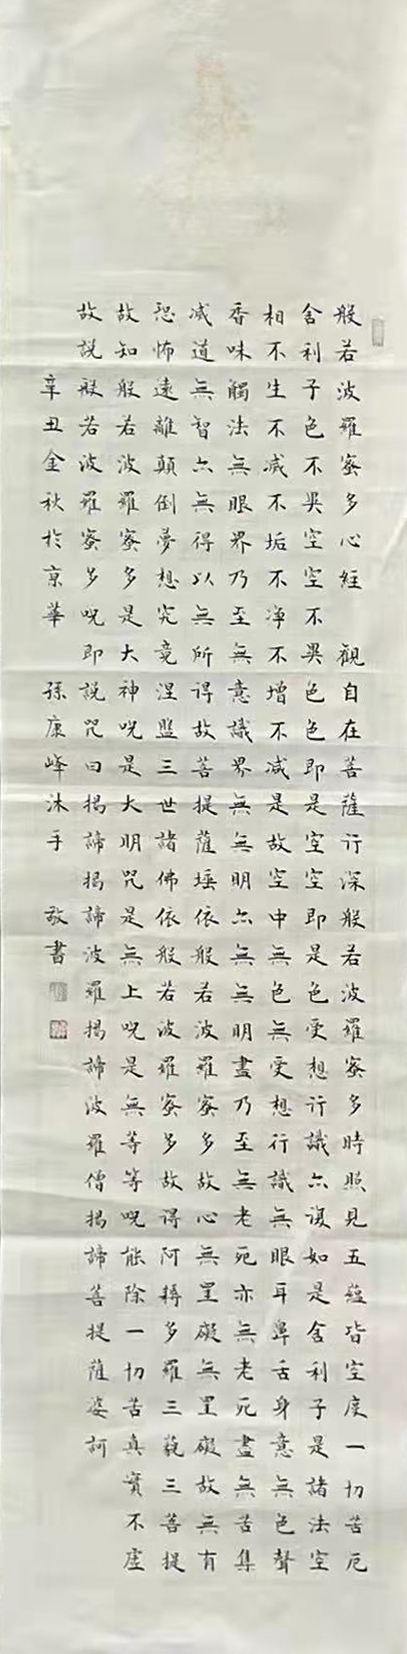 般若波羅蜜多心經 觀自在菩薩行深般若波羅蜜多時照見五蘊皆空度一切苦厄
舍利子色不異空空不異色色即是空空即是色受想行識亦復如是舍利子是諸法空
相不生不滅不垢不净不增不减是故空中無色無受想行識無眼耳鼻舌身意無色聲
香味觸法無眼界乃至無意識界無無明亦無無明盡乃至無老死亦無老死盡無苦集
滅道無智亦無得以無所得故菩提薩埵依般若波羅蜜多故心無罣礙無罣礙故無有
恐怖遠離顛倒夢想究竟涅盤三世諸佛依般若波羅蜜多故得阿耨多羅三藐三菩提
故知般若波羅蜜多是大神咒是大明咒是無上咒是無等等咒能除一切苦真實不虛
故說般若波羅蜜多咒即說咒曰揭諦揭諦波羅揭諦波羅僧揭諦菩提薩婆訶
辛丑金秋於京華 孫康峰沐手 敬書